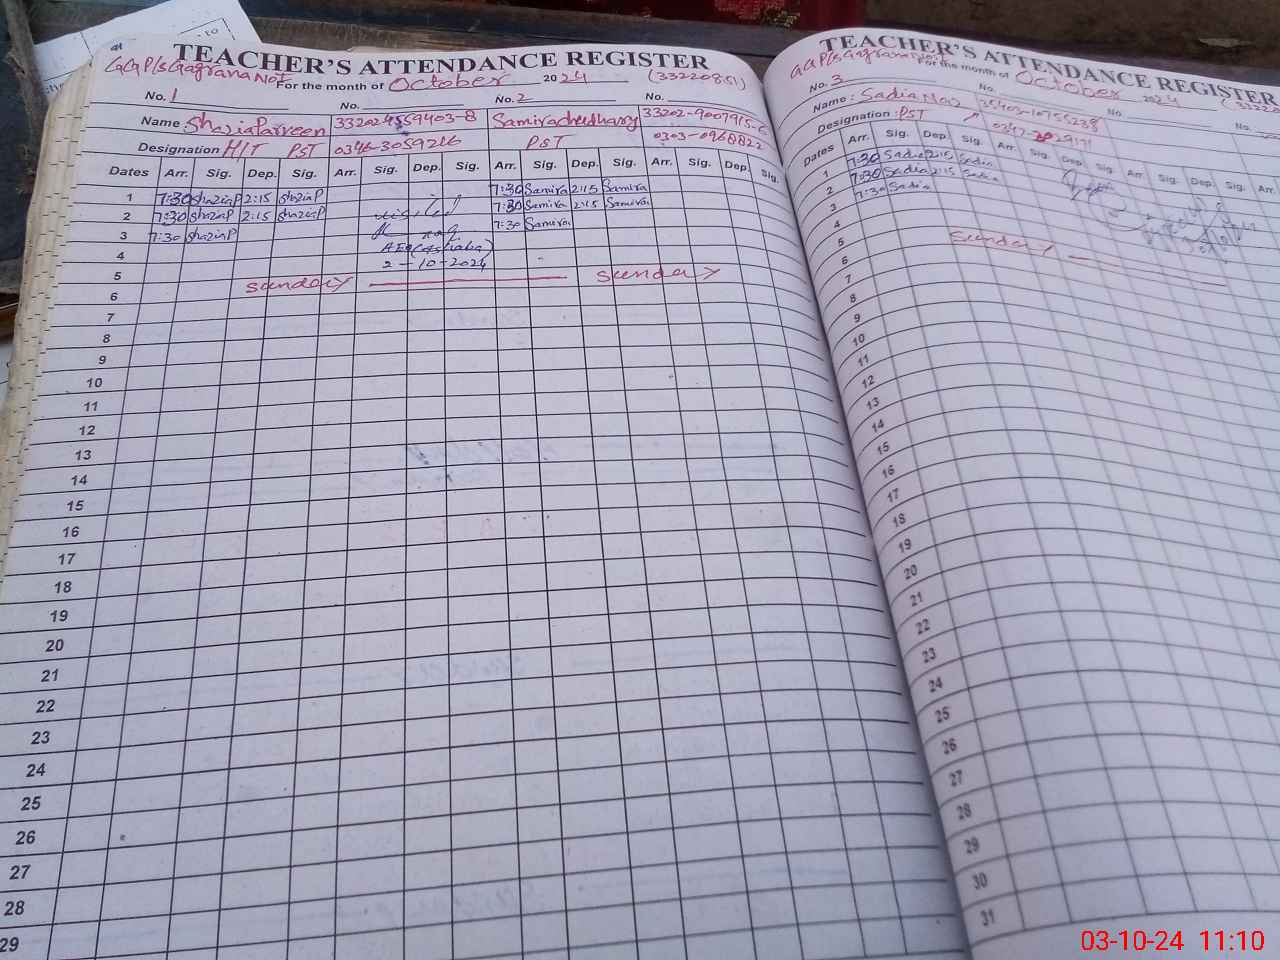 TEACHER'S ATTENDANCE REGISTER
GGP/s Gagrana Not For the month of October 2024 (33220851)
No. 1 No. No. 2 No.
Name: Shazia Parveen 332024559403-8 Samirachudhary 33202-9007915-6
Designation H/T PST 0346-3059216 PST 0303-0968822
Dates Arr. Sig. Dep. Sig. Arr. Sig. Dep. Sig. Arr. Sig. Dep. Sig. Arr. Sig. Dep. Sig.
1 7:30 ShaziaP 2:15 ShaziaP 7:30 Samira 2:15 Samira
2 7:30 ShaziaP 2:15 ShaziaP visited 7:30 Samira 2:15 Samira
3 7:30 ShaziaP 7:30 Samira
4 AEO
5 2-10-2024
6 Sunday Sunday
7
8
9
10
11
12
13
14
15
16
17
18
19
20
21
22
23
24
25
26
27
28
29
TEACHER'S ATTENDANCE REGISTER
GGP/s Gagrana Not For the month of October 2024
No. 3 No. No. No.
Name: Sadia Naz
Designation: PST
Dates Arr. Sig. Dep. Sig. Arr. Sig. Dep. Sig. Arr. Sig. Dep. Sig. Arr.
1 7:30 Sadia 2:15 Sadia
2 7:30 Sadia 2:15 Sadia
3 7:30 Sadia
4
5
6 Sunday
7
8
9
10
11
12
13
14
15
16
17
18
19
20
21
22
23
24
25
26
27
28
29
30
31
03-10-24 11:10